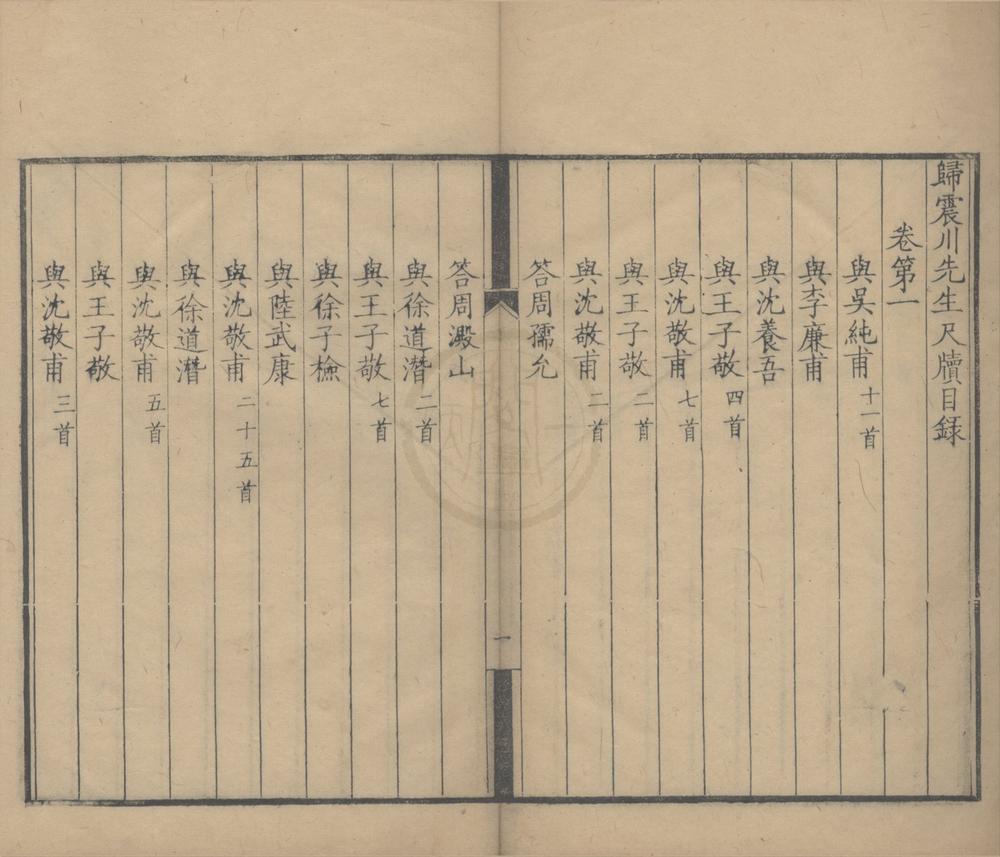 歸震川先生尺牘目録
卷第一
與吳純甫十一首
與李廉甫
與沈養吾
與王子敬四首
與沈敬甫七首
與王子敬二首
與沈敬甫二首
答周孺允
一
答周澱山
與徐道潛二首
與王子敬七首
與徐子檢
與陸武康
與沈敬甫二十五首
與徐道潛
與沈敬甫五首
與王子敬
與沈敬甫三首